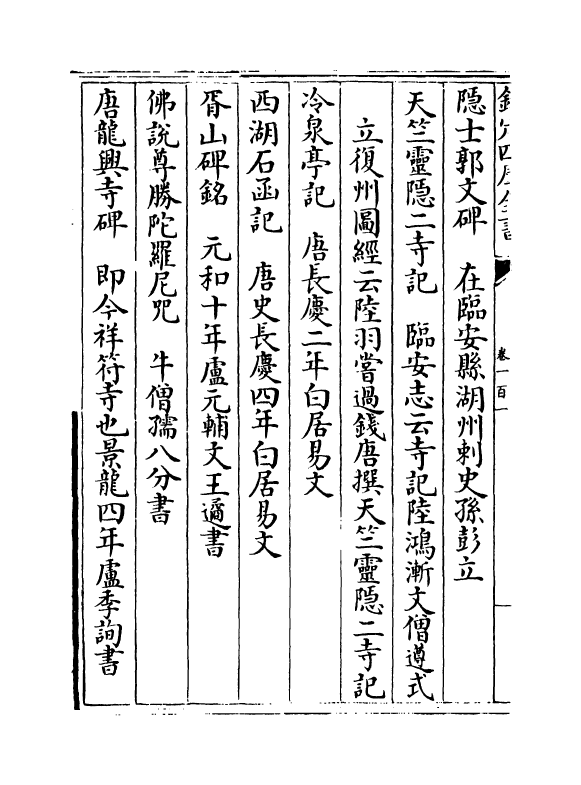 欽定四庫全書
卷一百一
隱士郭文碑　在臨安縣湖州刺史孫彭立
天竺靈隱二寺記　臨安志云寺記陸鴻漸文僧遵式
立復州圖經云陸羽嘗過錢唐撰天竺靈隱二寺記
冷泉亭記　唐長慶二年白居易文
西湖石函記　唐史長慶四年白居易文
胥山碑銘　元和十年盧元輔文王遹書
佛說尊勝陀羅尼咒　牛僧孺八分書
唐龍興寺碑　即今祥符寺也景龍四年盧季詢書